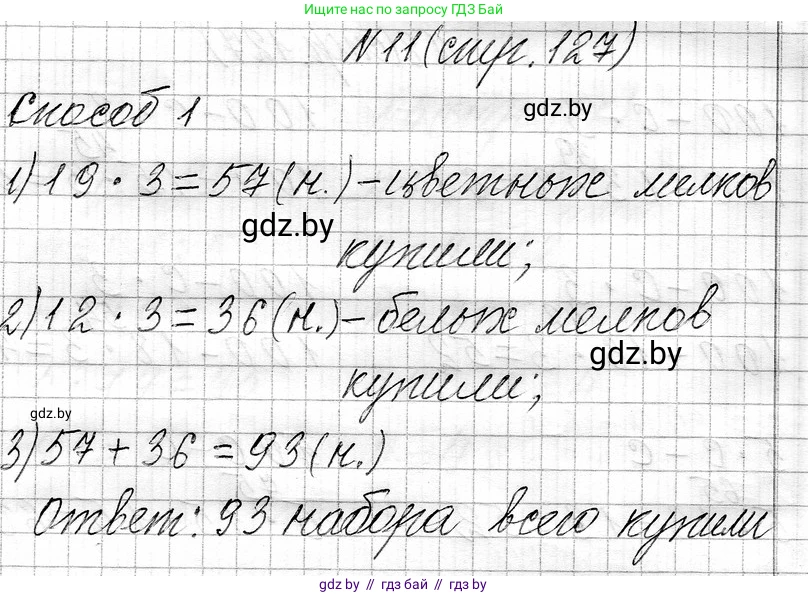 Ищите нас по запросу ГДЗ Бай
N 11 (стр. 127)
Способ 1
gdz.by
1) 19 · 3 = 57 (н.) - цветных мелков
gdz.by
купили;
2) 12 · 3 = 36 (н.) - белых мелков
gdz.by
купили;
gdz.by
3) 57 + 36 = 93 (н.)
Ответ: 93 набора всего купили
gdz.by // гдз бай // гдз.by